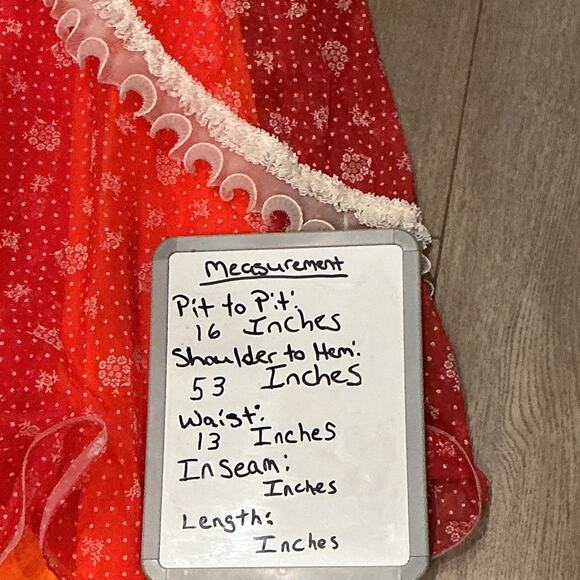 Measurement
Pit to Pit:
16 Inches
Shoulder to Hem:
53 Inches
Waist:
13 Inches
Inseam:
Inches
Length:
Inches